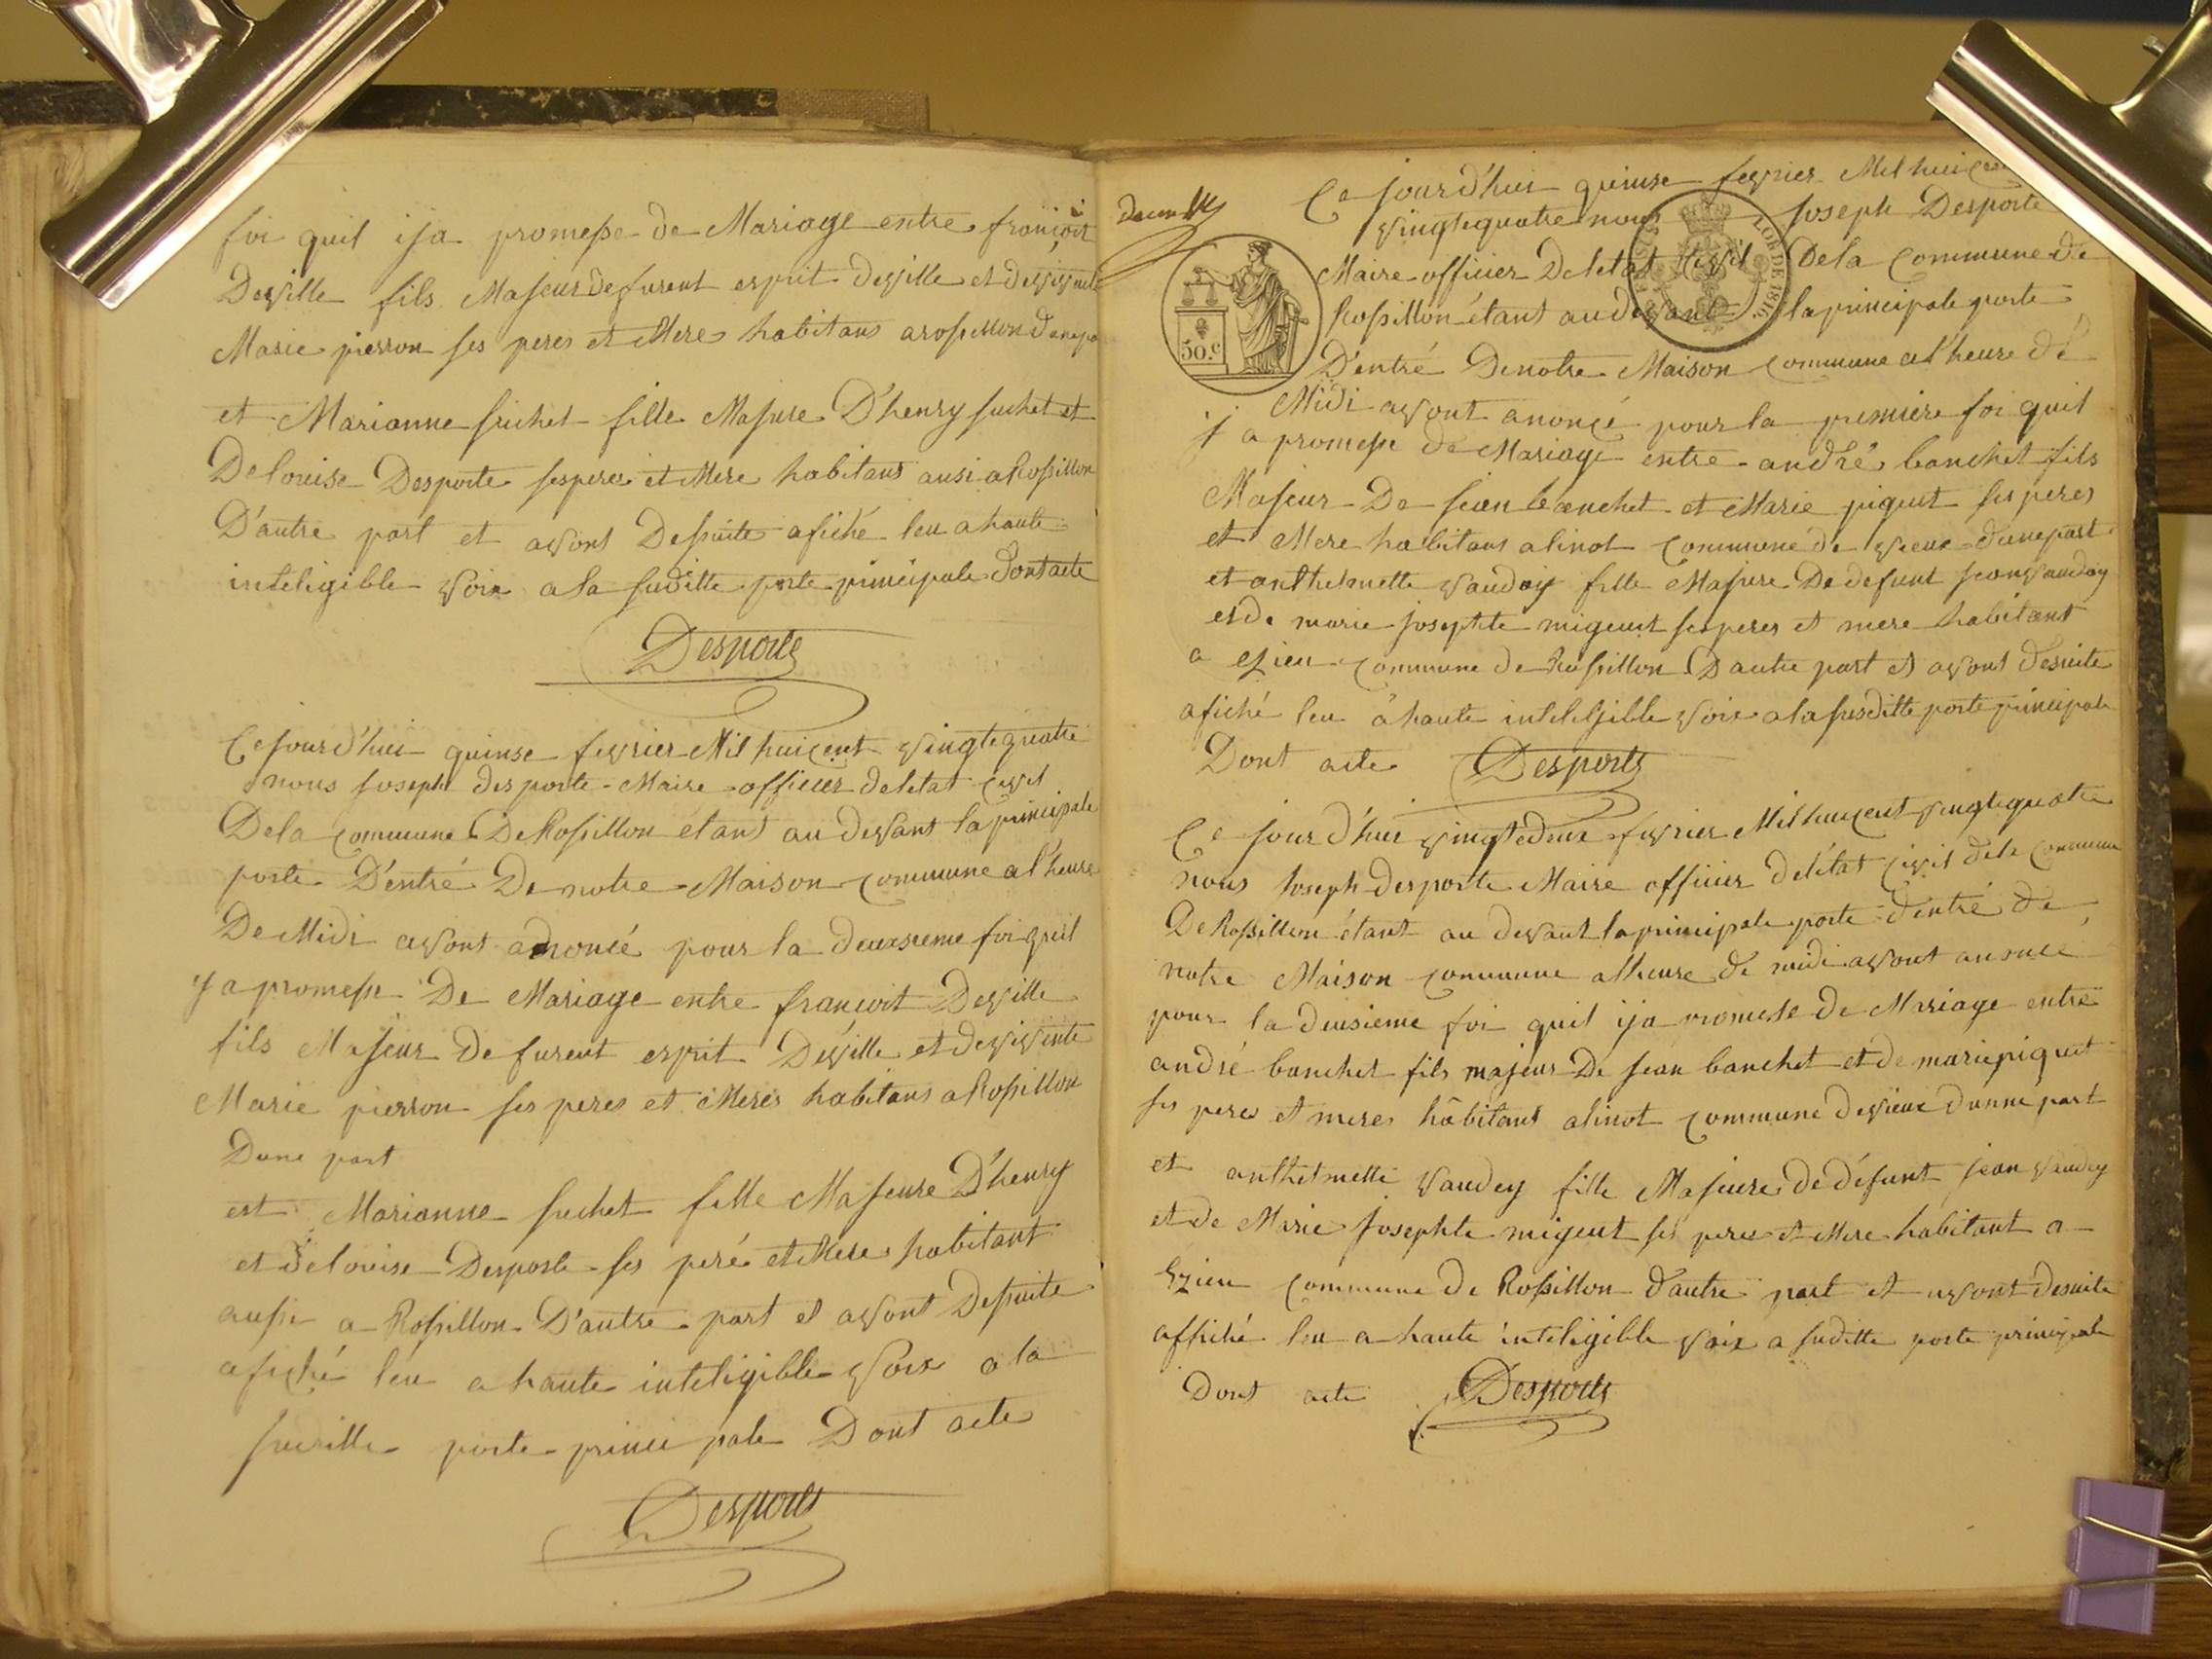 foi quil ija promesse de Mariage entre françoit
Deville fils Majeur de furent esprit deville et de vivente
Marie pierron ses peres et Mere habitans a rossillon dunepa
et Marianne suchet fille Majure D'henry suchet et
De louise Desporte ses peres et Mere habitans ausi a Rossillon
D'autre part et avons Desuite afiché leu a haute
inteligible voix a la suditte porte principale dont acte
Desporte
Ce jourd'hui quinse fevrier Mil huicent vingtequatre
nous joseph desporte Maire officier deletat civil
Dela commune De Rossillon étant au devant la principale
porte D'entré De notre Maison commune a l'heure
De Midi avont anoncé pour la deuxsieme foi quil
y a promesse De Mariage entre françoit Deville
fils Majeur de furent esprit Deville et de vivente
Marie pierron ses peres et Meres habitans a Rossillon
Dune part
est Marianne suchet fille Majeure D'henry
et de louise Desporte ses peré et Mere habitant
aussi a Rossillon D'autre part et avont Desuite
afiché leu a haute inteligible voix a la
suditte porte princi pale Dont acte
Desporte
Ce jourd'hui quinse fevrier Mil huicent
vingtequatre nous joseph Desporte
Maire officier Deletat civil Dela commune de
Rossillon étant au devant la principale porte
D'entré De notre Maison commune a l'heure de
Midi avont anoncé pour la premiere foi quil
y a promesse de Mariage entre andré banchet fils
Majeur De jean banchet et Marie piguet ses peres
et Mere habitans a linot commune de vieux dune part
et anthelmette vaudey fille Majure De defunt jean vaudey
et de marie josephte miguet ses peres et mere habitant
a ezieu commune de Rossillon D autre part et avont desuite
afiché leu à haute inteligible voix a la susditte porte principale
Dont acte Desporte
Ce jour d'hui vingtedeux fevrier Mil huicent vingtequatre
nous joseph desporte Maire officier delétat civil dela commune
De Rossillon étant au devant la principale porte dentré de
notre Maison commune a lheure de midi avont anoncé
pour la deusieme foi quil ija promesse de Mariage entre
andré banchet fils majeur De jean banchet et de marie piguet
ses peres et meres hâbitant a linot commune de vieux dunne part
et anthelmette vaudey fille Majeure de défunt jean vaudey
et de Marie josephte miguet ses peres et Mere habitant a
Ezieu commune de Rossillon d'autre part et avont desuite
affiché leu a haute inteligible voix a suditte porte principale
Dont acte Desporte
50.c
LOI DE 1816